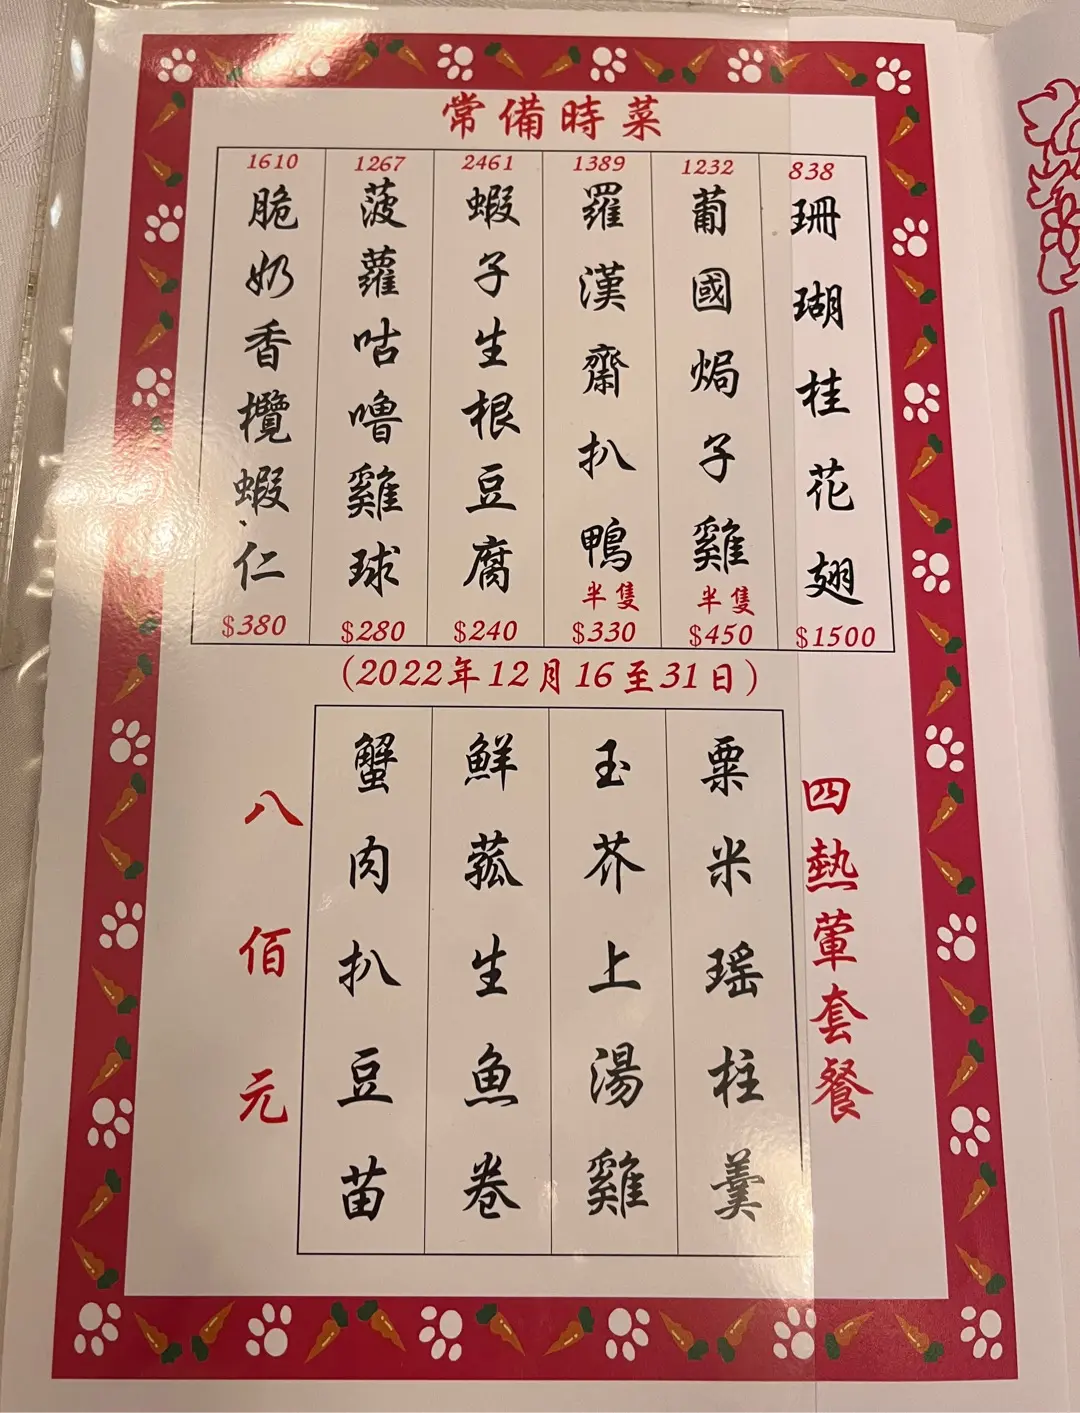 常備時菜
838
珊瑚桂花翅
$1500
1232
葡國焗子雞
半隻
$450
1389
羅漢齋扒鴨
半隻
$330
2461
蝦子生根豆腐
$240
1267
菠蘿咕嚕雞球
$280
1610
脆奶香欖蝦仁
$380
(2022年12月16至31日)
四熱葷套餐
粟米瑶柱羹
玉芥上湯雞
鮮菰生魚卷
蟹肉扒豆苗
八佰元